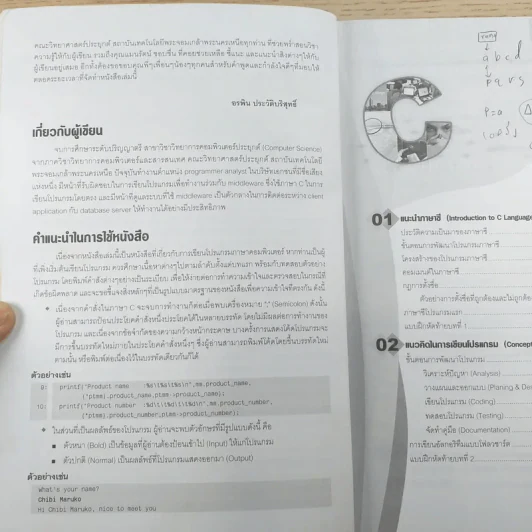 คณะวิทยาศาสตร์ประยุกต์ สถาบันเทคโนโลยีพระจอมเกล้าพระนครเหนือทุกท่าน ที่ช่วยพร่ำสอนวิชา
ความรู้ให้กับผู้เขียน รวมถึงคุณแมนรัตน์ ชอบชื่น ที่คอยช่วยเหลือ ชี้แนะ และแนะนำสิ่งต่างๆให้กับ
ผู้เขียนอยู่เสมอ อีกทั้งต้องขอขอบคุณพี่ๆเพื่อนๆน้องๆทุกคนสำหรับคำพูดและกำลังใจดีๆที่มอบให้
ตลอดระยะเวลาที่จัดทำหนังสือเล่มนี้
ทรพิน ประวัติบริสุทธิ์
เกี่ยวกับผู้เขียน
จบการศึกษาระดับปริญญาตรี สาขาวิชาวิทยาการคอมพิวเตอร์ประยุกต์ (Computer Science)
จากภาควิชาวิทยาการคอมพิวเตอร์และสารสนเทศ คณะวิทยาศาสตร์ประยุกต์ สถาบันเทคโนโลยี
พระจอมเกล้าพระนครเหนือ ปัจจุบันทำงานตำแหน่ง programmer analyst ในบริษัทเอกชนที่มีชื่อเสียง
แห่งหนึ่ง มีหน้าที่รับผิดชอบในการเขียนโปรแกรมเพื่อทำงานร่วมกับ middleware ซึ่งใช้ภาษา C ในการ
เขียนโปรแกรมโดยตรง และมีหน้าที่ดูแลระบบที่ใช้ middleware เป็นตัวกลางในการติดต่อระหว่าง client
application กับ database server ให้ทำงานได้อย่างมีประสิทธิภาพ
คำแนะนำในการใช้หนังสือ
เนื่องจากหนังสือเล่มนี้เป็นหนังสือที่เกี่ยวกับการเขียนโปรแกรมภาษาคอมพิวเตอร์ หากท่านเป็นผู้
ที่เพิ่งเริ่มต้นเขียนโปรแกรม ควรศึกษาเนื้อหาต่างๆไปตามลำดับตั้งแต่บทแรก พร้อมกับทดสอบตัวอย่าง
โปรแกรม โดยพิมพ์คำสั่งต่างๆอย่างเป็นระเบียบ เพื่อให้ง่ายต่อการทำความเข้าใจและตรวจสอบในกรณีที่
เกิดข้อผิดพลาด และจะขอชี้แจงหลักๆที่เป็นรูปแบบมาตรฐานของหนังสือเพื่อความเข้าใจที่ตรงกัน ดังนี้
เนื่องจากคำสั่งในภาษา C จะจบการทำงานก็ต่อเมื่อพบเครื่องหมาย ";" (Semicolon) ดังนั้น
ผู้อ่านสามารถป้อนประโยคคำสั่งหนึ่งประโยคได้ในหลายบรรทัด โดยไม่มีผลต่อการทำงานของ
โปรแกรม และเนื่องจากข้อจำกัดของความกว้างหน้ากระดาษ บางครั้งการแสดงโค้ดโปรแกรมจะ
มีการขึ้นบรรทัดใหม่ภายในประโยคคำสั่งหนึ่งๆ ซึ่งผู้อ่านสามารถพิมพ์โค้ดโดยขึ้นบรรทัดใหม่
ตามนั้น หรือพิมพ์ต่อเนื่องไว้ในบรรทัดเดียวกันก็ได้
ตัวอย่างเช่น
9: printf("Product name :%s\t%s\t%s\n",me.product_name,
(*ptme).product_name,ptme->product_name);
10: printf("Product number :%d\t\t%d\t\t%d\n",me.product_number,
(*ptme).product_number,ptme->product_number);
ในส่วนที่เป็นผลลัพธ์ของโปรแกรม ผู้อ่านจะพบตัวอักษรที่มีรูปแบบดังนี้ คือ
ตัวหนา (Bold) เป็นข้อมูลที่ผู้อ่านต้องป้อนเข้าไป (Input) ให้แก่โปรแกรม
ตัวปกติ (Normal) เป็นผลลัพธ์ที่โปรแกรมแสดงออกมา (Output)
ตัวอย่างเช่น
What's your name?
Chibi Maruko
Hi Chibi Maruko, nice to meet you
a b c d
C
01 แนะนำภาษาซี (Introduction to C Language
ประวัติความเป็นมาของภาษาซี
ขั้นตอนการพัฒนาโปรแกรมภาษาซี
โครงสร้างของโปรแกรมภาษาซี
คอมเมนต์ในภาษาซี
กฎการตั้งชื่อ
ตัวอย่างการตั้งชื่อที่ถูกต้องและไม่ถูกต้อง
ภาษาซีโปรแกรมแรก
แบบฝึกหัดท้ายบทที่ 1
02 แนวคิดในการเขียนโปรแกรม (Concep
ขั้นตอนการพัฒนาโปรแกรม
วิเคราะห์ปัญหา (Analysis)
วางแผนและออกแบบ (Planing & De
เขียนโปรแกรม (Coding)
ทดสอบโปรแกรม (Testing)
จัดทำคู่มือ (Documentation)
การเขียนอัลกอริทึมแบบโฟลวชาร์ต
แบบฝึกหัดท้ายบทที่ 2